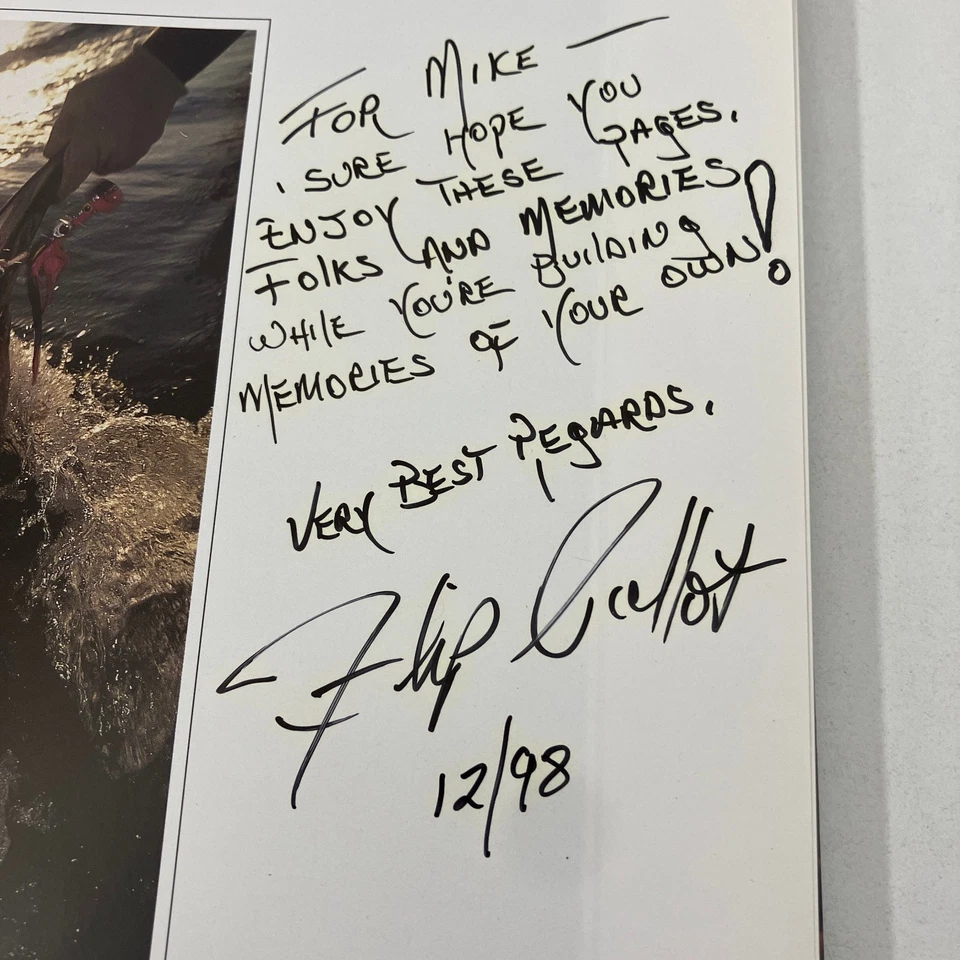 FOR MIKE —
I SURE HOPE YOU
ENJOY THESE PAGES,
FOLKS AND MEMORIES
WHILE YOU'RE BUILDING
MEMORIES OF YOUR OWN!
VERY BEST REGARDS,
Flip Pallot
12/98